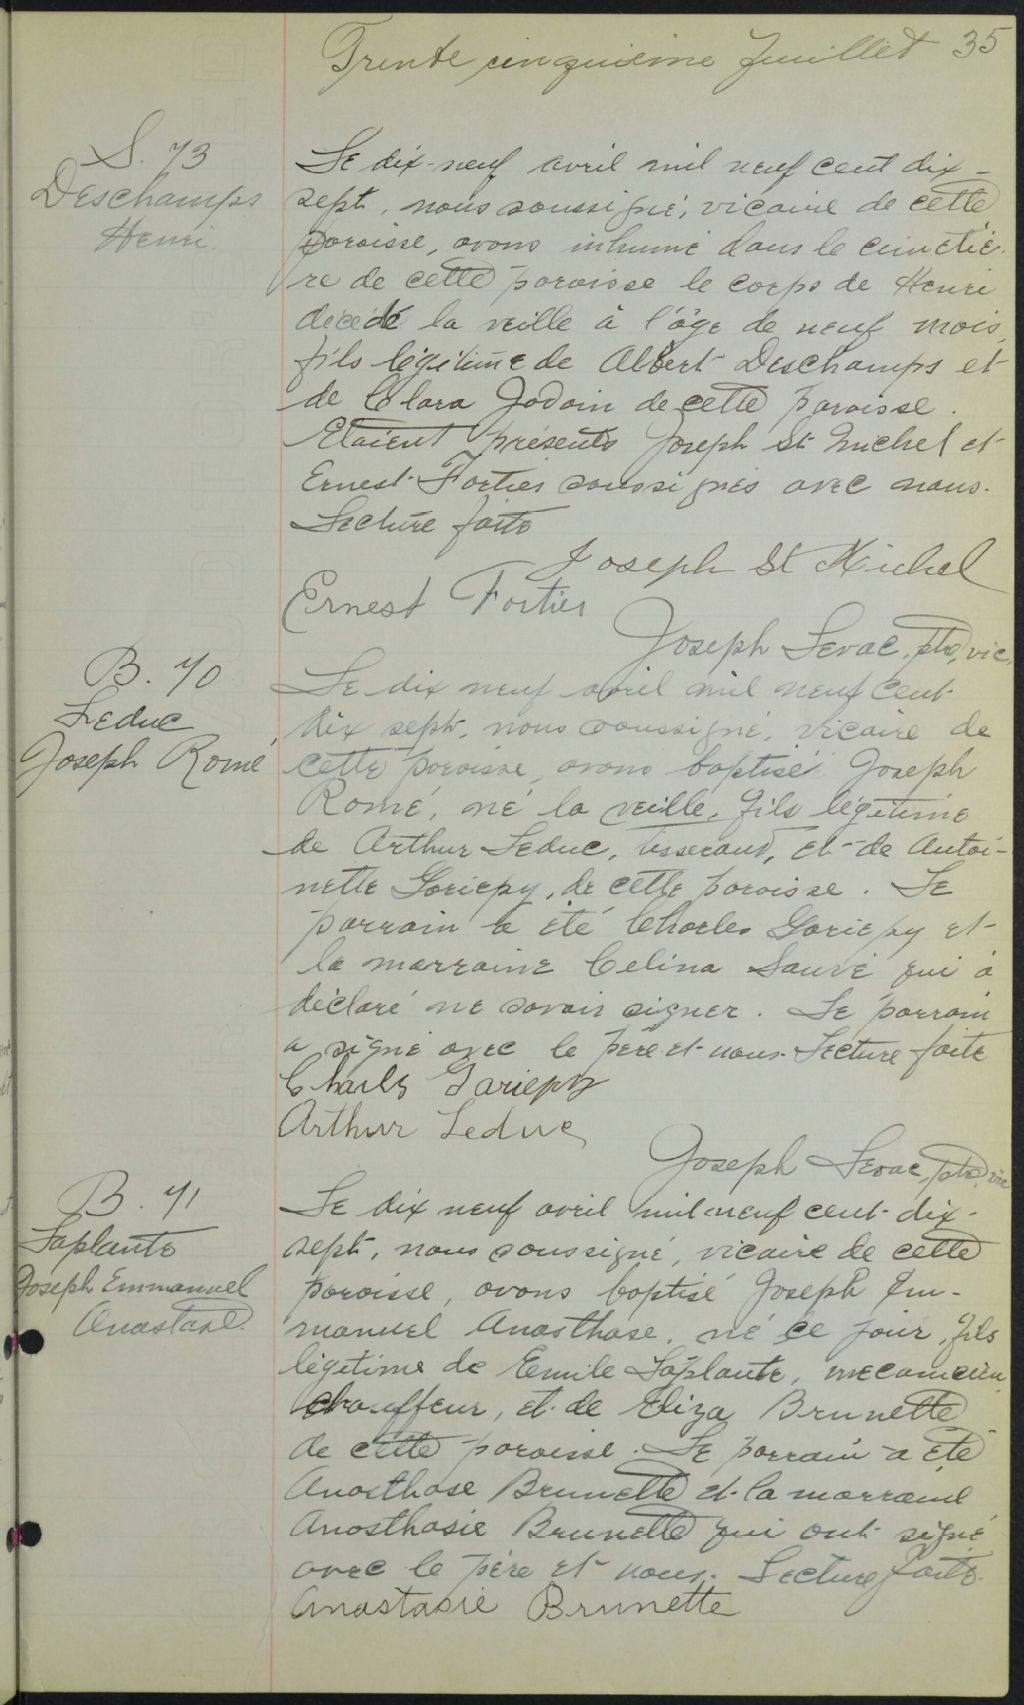 Trente cinquième feuillet 35
S. 73
Deschamps
Henri
Le dix-neuf avril mil neuf cent dix-
sept, nous soussigné, vicaire de cette
paroisse, avons inhumé dans le cimetiè-
re de cette paroisse le corps de Henri
décédé la veille à l'âge de neuf mois,
fils légitime de Albert Deschamps et
de Clara Jodoin de cette paroisse.
Etaient présents Joseph St Michel et
Ernest Fortier soussignés avec nous.
Lecture faite
Joseph St Michel
Ernest Fortier
Joseph Levac, ptre, vic.
B. 70
Leduc
Joseph Romé
Le dix neuf avril mil neuf cent
dix sept, nous soussigné, vicaire de
cette paroisse, avons baptisé Joseph
Romé, né la veille, fils légitime
de Arthur Leduc, tisserand, et de Antoi-
nette Gariepy, de cette paroisse. Le
parrain a été Charles Gariepy et
la marraine Celina Sauvé qui a
déclaré ne savoir signer. Le parrain
a signé avec le père et nous. Lecture faite
Charles Gariepy
Arthur Leduc
Joseph Levac, ptre, vic
B. 71
Laplante
Joseph Emmanuel
Anastase.
Le dix neuf avril mil neuf cent dix-
sept, nous soussigné, vicaire de cette
paroisse, avons baptisé Joseph Em-
manuel Anasthase, né ce jour, fils
légitime de Emile Laplante, mecanicien
chauffeur, et de Eliza Brunette
de cette paroisse. Le parrain a été
Anasthase Brunette et la marraine
Anasthasie Brunette qui ont signé
avec le père et nous. Lecture faite.
Anastasie Brunette